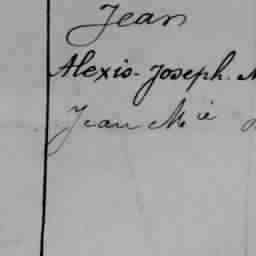 Jean
Alexis-Joseph
Jean M ie